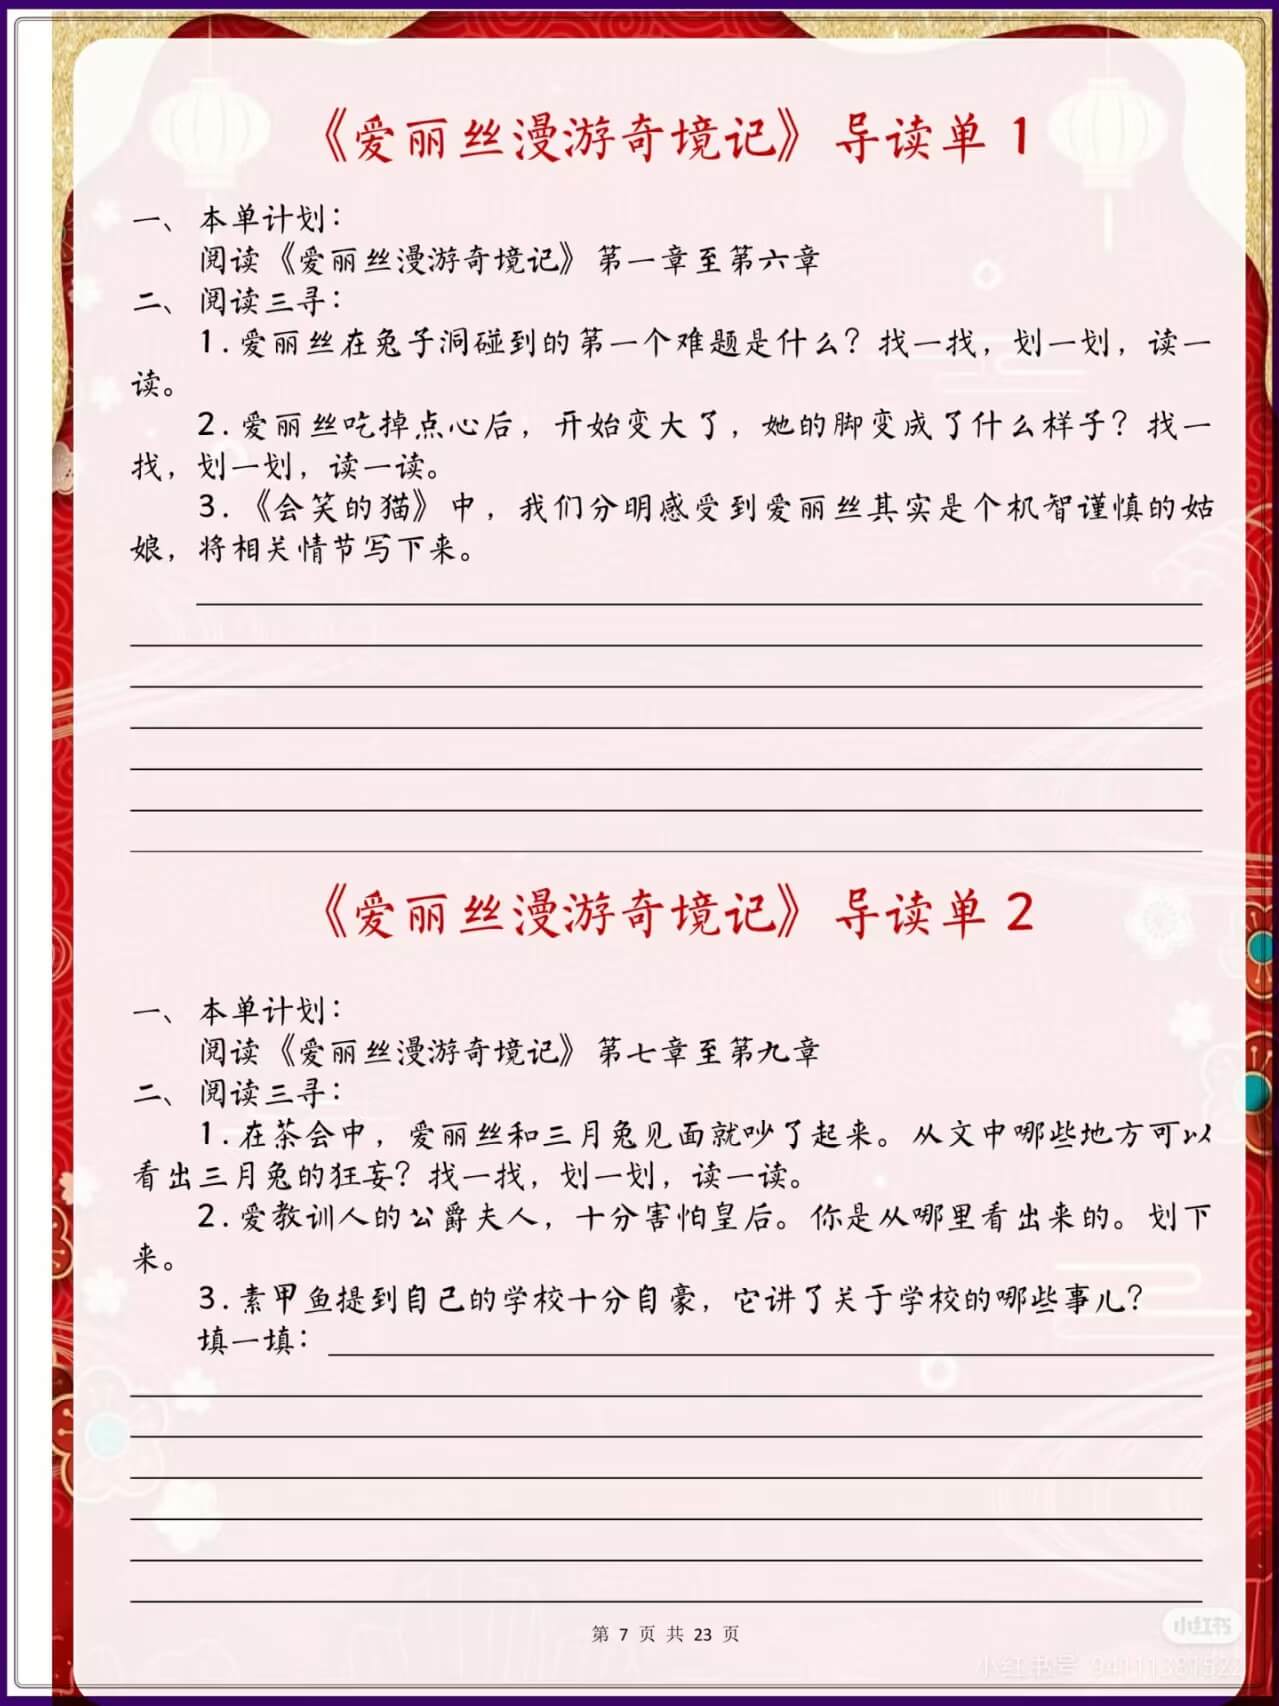 《爱丽丝漫游奇境记》导读单 1
一、本单计划：
阅读《爱丽丝漫游奇境记》第一章至第六章
二、阅读三寻：
1.爱丽丝在兔子洞碰到的第一个难题是什么？找一找，划一划，读一
读。
2.爱丽丝吃掉点心后，开始变大了，她的脚变成了什么样子？找一
找，划一划，读一读。
3.《会笑的猫》中，我们分明感受到爱丽丝其实是个机智谨慎的姑
娘，将相关情节写下来。
《爱丽丝漫游奇境记》导读单 2
一、本单计划：
阅读《爱丽丝漫游奇境记》第七章至第九章
二、阅读三寻：
1.在茶会中，爱丽丝和三月兔见面就吵了起来。从文中哪些地方可以
看出三月兔的狂妄？找一找，划一划，读一读。
2.爱教训人的公爵夫人，十分害怕皇后。你是从哪里看出来的。划下
来。
3.素甲鱼提到自己的学校十分自豪，它讲了关于学校的哪些事儿？
填一填：
第 7 页 共 23 页
小红书